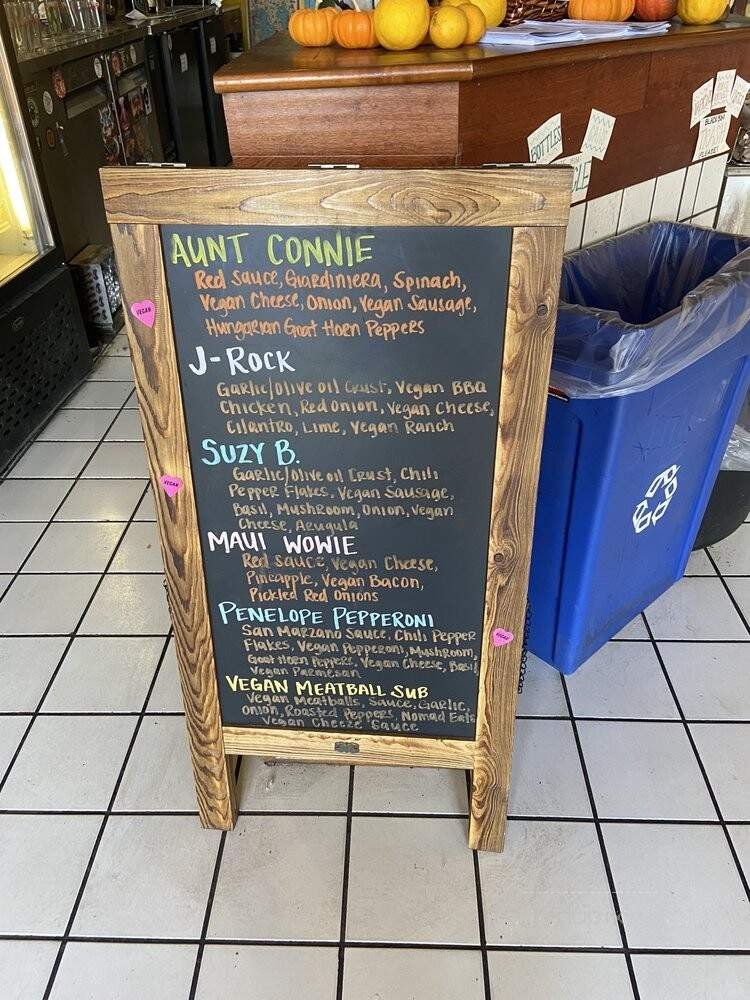 AUNT CONNIE
Red Sauce, Giardiniera, Spinach,
Vegan Cheese, Onion, Vegan Sausage,
Hungarian Goat Horn Peppers
J-ROCK
Garlic/Olive oil Crust, Vegan BBQ
Chicken, Red Onion, Vegan Cheese,
Cilantro, Lime, Vegan Ranch
SUZY B.
Garlic/Olive oil Crust, Chili
Pepper Flakes, Vegan Sausage,
Basil, Mushroom, Onion, Vegan
Cheese, Arugula
MAUI WOWIE
Red Sauce, Vegan Cheese,
Pineapple, Vegan Bacon,
Pickled Red Onions
PENELOPE PEPPERONI
San Marzano Sauce, Chili Pepper
Flakes, Vegan Pepperoni, Mushroom,
Goat Horn Peppers, Vegan Cheese, Basil,
Vegan Parmesan
VEGAN MEATBALL SUB
Vegan Meatballs, Sauce, Garlic,
Onion, Roasted Peppers, Nomad Eats
Vegan Cheeze Sauce
VEGAN
VEGAN
VEGAN
BOTTLES